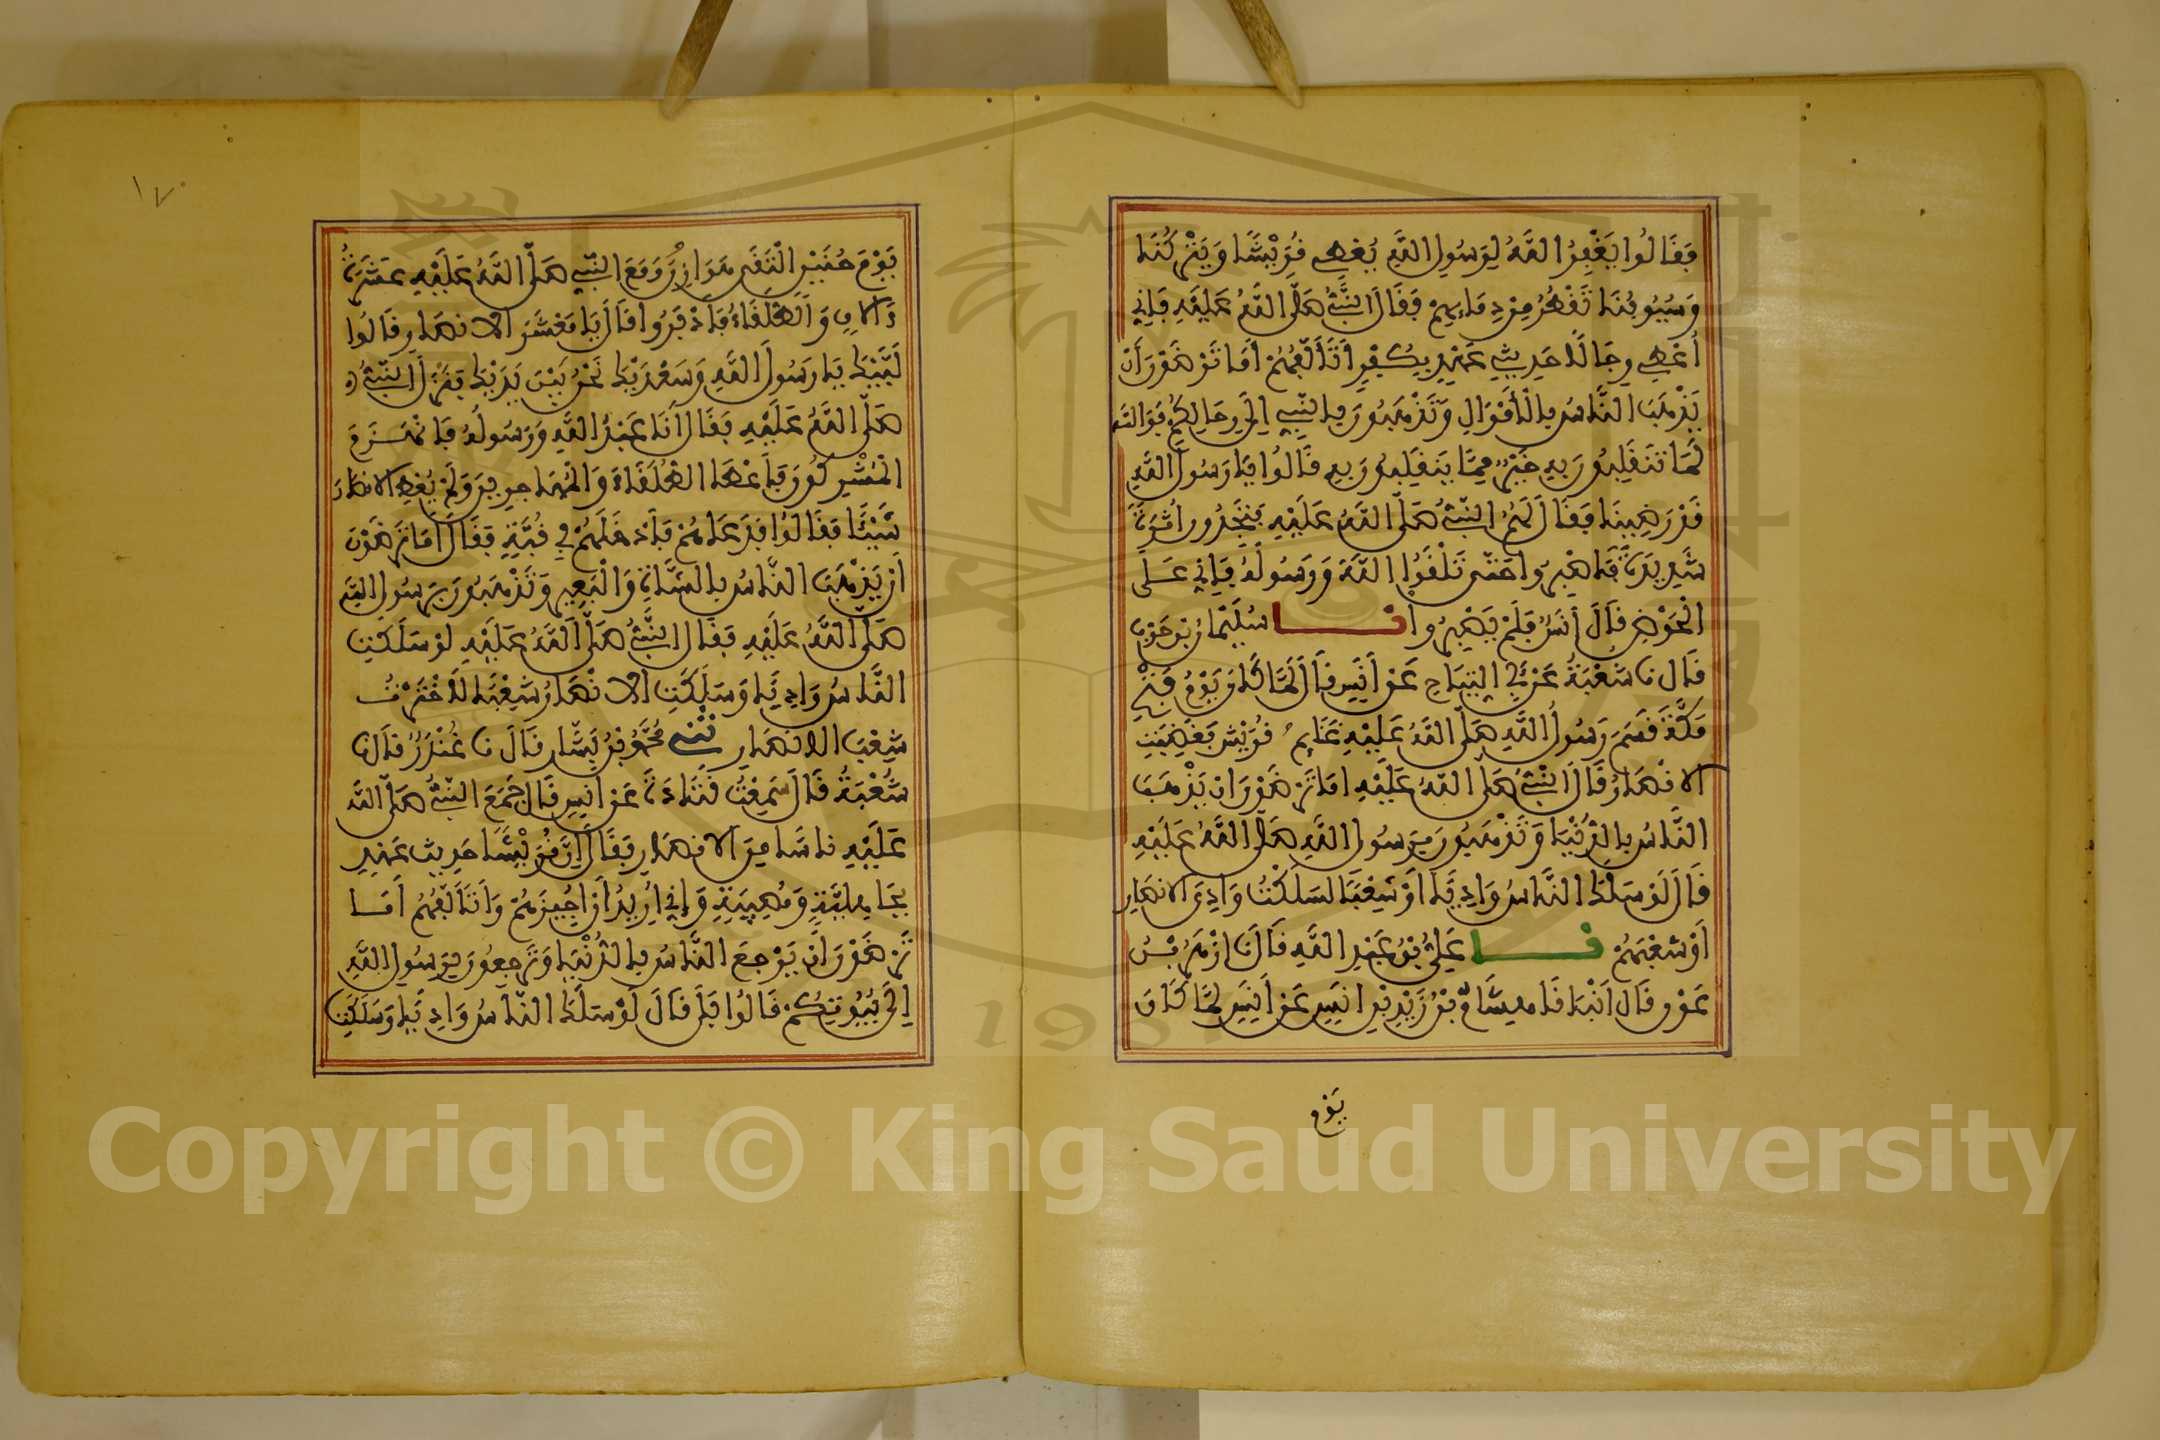 فَقَالُوا يَغْفِرُ اللَّهُ لِرَسُولِ اللَّهِ يُعْطِى قُرَيْشًا وَيَتْرُكُنَا
وَسُيُوفُنَا تَقْطُرُ مِنْ دِمَائِهِمْ فَقَالَ النَّبِىُّ صَلَّى اللَّهُ عَلَيْهِ فَإِنِّى
أُعْطِى رِجَالًا حَدِيثِى عَهْدٍ بِكُفْرٍ أَتَأَلَّفُهُمْ أَمَا تَرْضَوْنَ أَنْ
يَذْهَبَ النَّاسُ بِالْأَمْوَالِ وَتَذْهَبُونَ بِالنَّبِىِّ إِلَى رِحَالِكُمْ فَوَاللَّهِ
لَمَا تَنْقَلِبُونَ بِهِ خَيْرٌ مِمَّا يَنْقَلِبُونَ بِهِ قَالُوا يَا رَسُولَ اللَّهِ
قَدْ رَضِينَا فَقَالَ لَهُمُ النَّبِىُّ صَلَّى اللَّهُ عَلَيْهِ سَتَجِدُونَ أَثَرَةً
شَدِيدَةً فَاصْبِرُوا حَتَّى تَلْقَوُا اللَّهَ وَرَسُولَهُ فَإِنِّى عَلَى
الْحَوْضِ قَالَ أَنَسٌ فَلَمْ يَصْبِرُوا نا سُلَيْمَانُ بْنُ حَرْبٍ
قَالَ نا شُعْبَةُ عَنْ أَبِى التَّيَّاحِ عَنْ أَنَسٍ قَالَ لَمَّا كَانَ يَوْمُ فَتْحِ
مَكَّةَ قَسَمَ رَسُولُ اللَّهِ صَلَّى اللَّهُ عَلَيْهِ غَنَايِمَ قُرَيْشٍ فَغَضِبَتِ
الانْصَارُ قَالَ النَّبِىُّ صَلَّى اللَّهُ عَلَيْهِ امَا تَرْضَوْنَ انْ يَذْهَبَ
النَّاسُ بِالدُّنْيَا وَتَذْهَبُونَ بِرَسُولِ اللَّهِ صَلَّى اللَّهُ عَلَيْهِ
قَالَ لَوْ سَلَكَ النَّاسُ وَادِيًا اَوْ شِعْبًا لَسَلَكْتُ وَادِىَ الانْصَارِ
اَوْ شِعْبَهُمْ نا عَلِىُّ بْنُ عَبْدِ اللَّهِ قَالَ نا ازْهَرُ بْنُ
عَوْنٍ قَالَ اَنْبَانَا هِشَامُ بْنُ زَيْدِ بْنِ انَسٍ عَنْ أَنَسٍ لَمَّا كَانَ
يَوْمَ
١٧٠
يَوْمَ حُنَيْنٍ الْتَقَى هَوَازِنُ وَمَعَ النَّبِىِّ صَلَّى اللَّهُ عَلَيْهِ عَشَرَةُ
ءَالافٍ وَالطُّلَقَاءُ فَأَدْبَرُوا قَالَ يَا مَعْشَرَ الانْصَارِ قَالُوا
لَبَّيْكَ يَا رَسُولَ اللَّهِ وَسَعْدَيْكَ نَحْنُ بَيْنَ يَدَيْكَ فَنَزَلَ النَّبِىُّ
صَلَّى اللَّهُ عَلَيْهِ فَقَالَ أَنَا عَبْدُ اللَّهِ وَرَسُولُهُ فَانْهَزَمَ
الْمُشْرِكُونَ فَأَعْطَا الطُّلَقَاءَ وَالْمُهَاجِرِينَ وَلَمْ يُعْطِ الانْصَارَ
شَيْئًا فَقَالُوا فَدَعَاهُمْ فَأَدْخَلَهُمْ فِى قُبَّةٍ فَقَالَ أَمَا تَرْضَوْنَ
أَنْ يَذْهَبَ النَّاسُ بِالشَّاةِ وَالْبَعِيرِ وَتَذْهَبُونَ بِرَسُولِ اللَّهِ
صَلَّى اللَّهُ عَلَيْهِ فَقَالَ النَّبِىُّ صَلَّى اللَّهُ عَلَيْهِ لَوْ سَلَكَتِ
النَّاسُ وَادِيًا وَسَلَكَتِ الانْصَارُ شِعْبًا لَاخْتَرْتُ
شِعْبَ الانْصَارِ ثنى مُحَمَّدُ بْنُ بَشَّارٍ قَالَ نا غُنْدَرٌ قَالَ نا
شُعْبَةُ قَالَ سَمِعْتُ قَتَادَةَ عَنْ انَسٍ قَالَ جَمَعَ النَّبِىُّ صَلَّى اللَّهُ
عَلَيْهِ نَاسًا مِنَ الانْصَارِ فَقَالَ إِنَّ قُرَيْشًا حَدِيثُ عَهْدٍ
بِجَاهِلِيَّةٍ وَمُصِيبَةٍ وَإِنِّى أُرِيدُ أَنْ أَجِيزَهُمْ وَأَتَأَلَّفُهُمْ أَمَا
تَرْضَوْنَ أَنْ يَرْجِعَ النَّاسُ بِالدُّنْيَا وَتَرْجِعُونَ بِرَسُولِ اللَّهِ
إِلَى بُيُوتِكُمْ قَالُوا بَلَى قَالَ لَوْ سَلَكَ النَّاسُ وَادِيًا وَسَلَكَتِ
Copyright © King Saud University